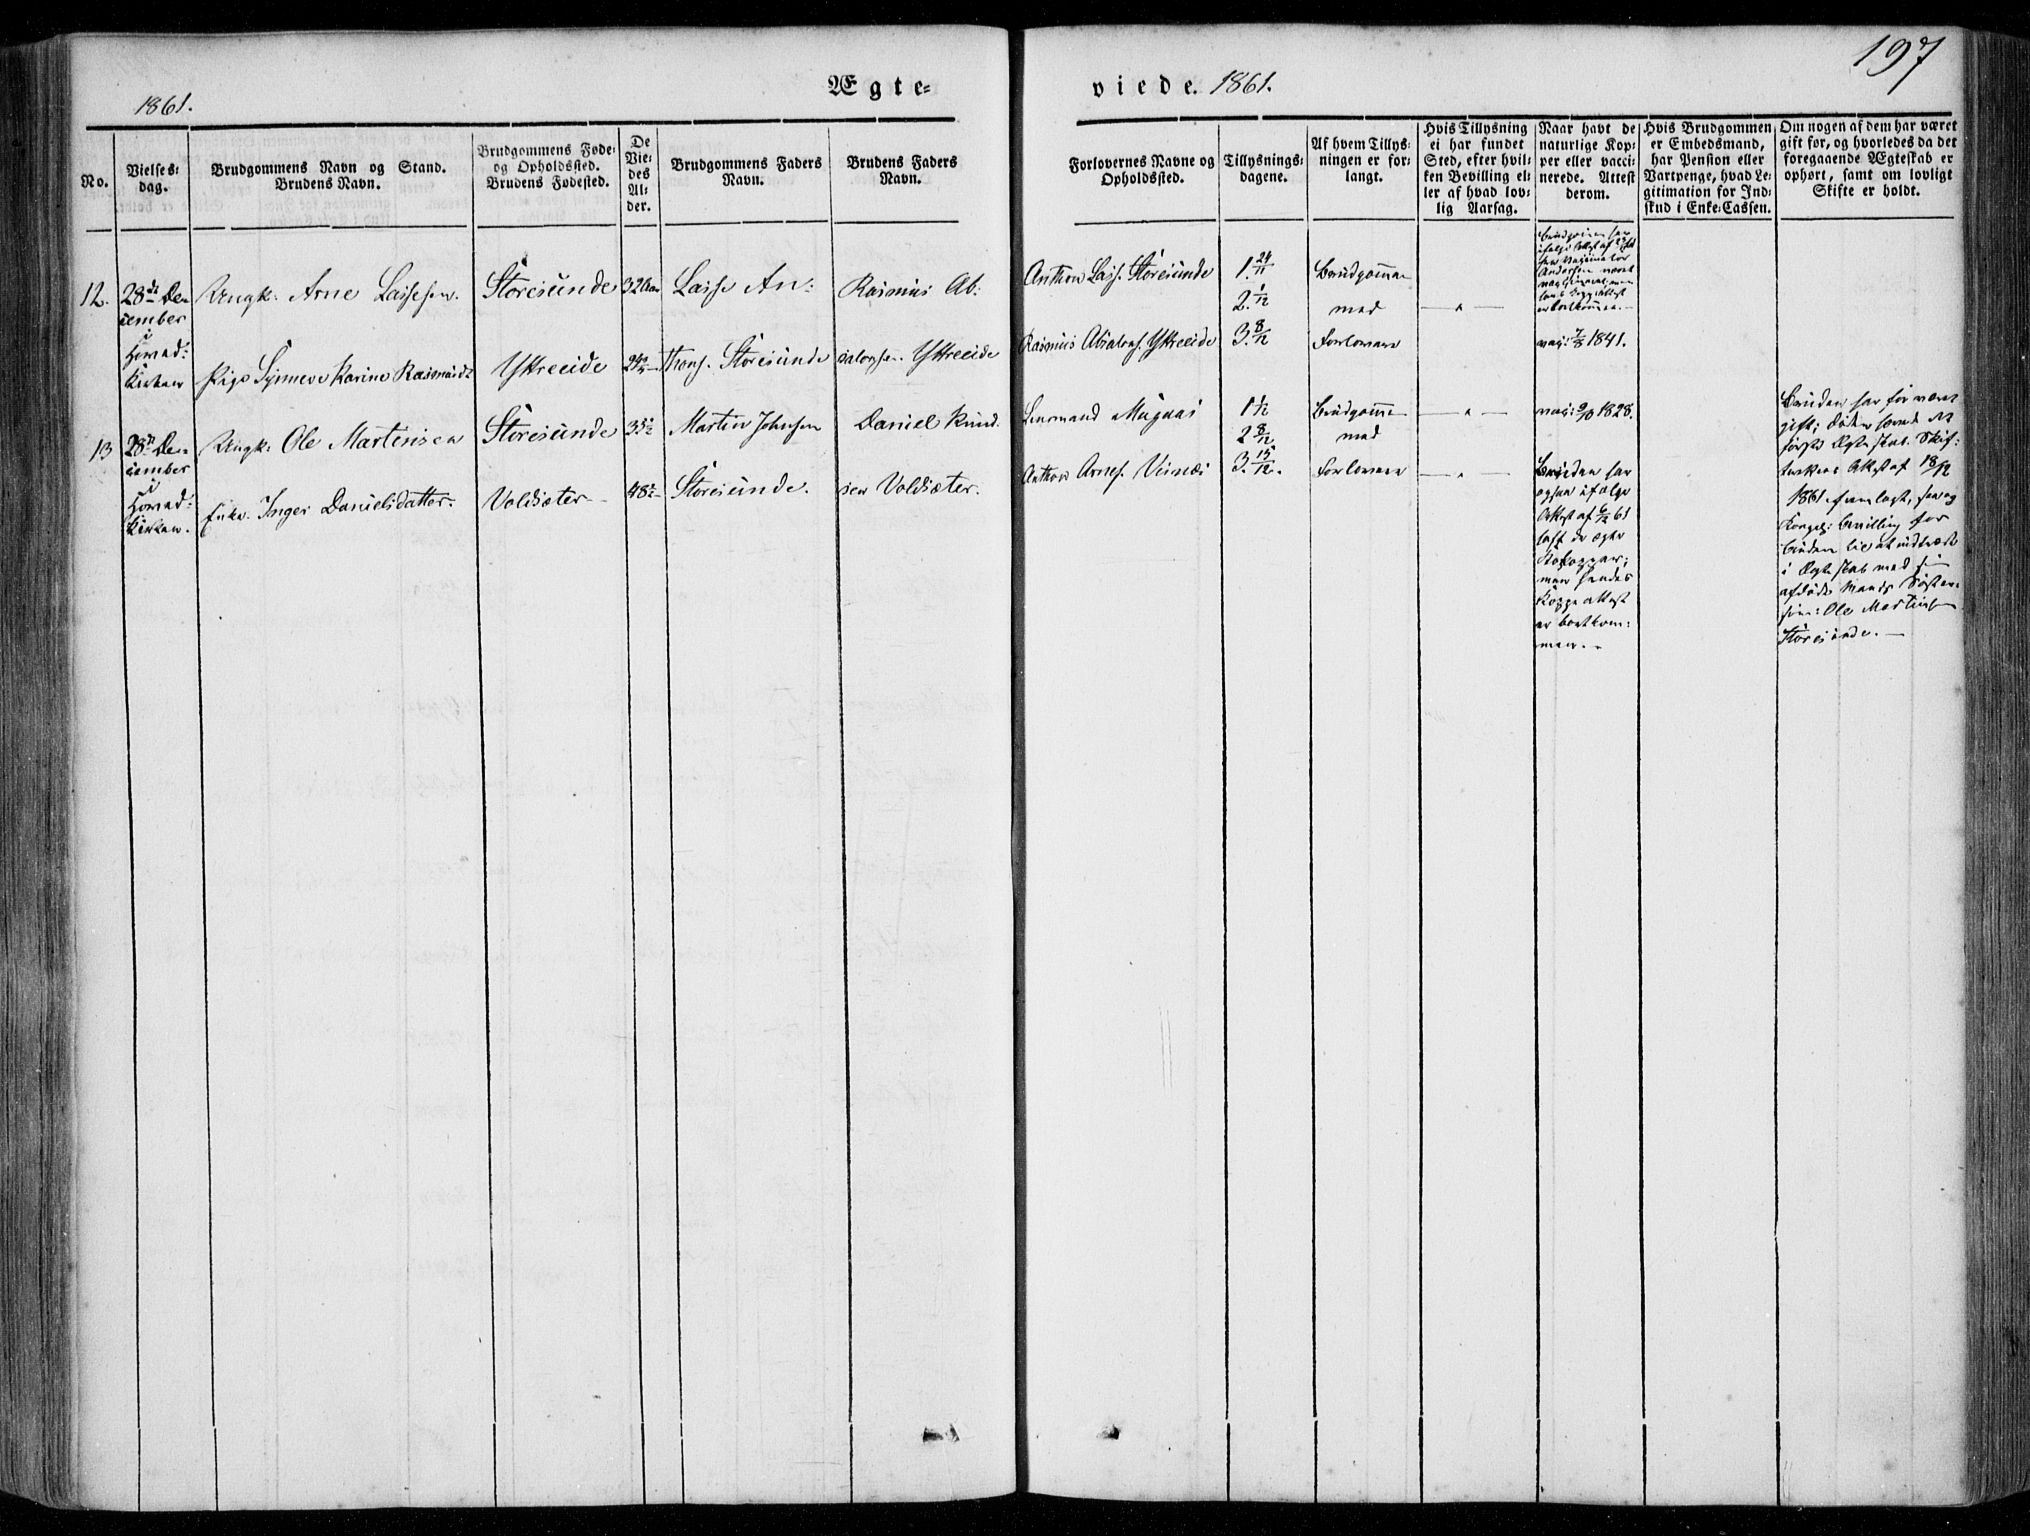 197
Ægte-
viede. 1861.
1861.
No.
Vielses-
dag.
Brudgommens Navn og Stand.
Brudens Navn.
Brudgommens Føde-
og Opholdssted.
Brudens Fødested.
De
Vie-
des
Al-
der.
Brudgommens Faders
Navn.
Brudens Faders
Navn.
Forlovernes Navne og
Opholdssted.
Tillysnings-
dagene.
Af hvem Tillys-
ningen er for-
langt.
Hvis Tillysning
ei har fundet
Sted, efter hvil-
ken Bevilling el-
ler af hvad lov-
lig Aarsag.
Naar havt de
naturlige Kop-
per eller vacci-
nerede. Attest
derom.
Hvis Brudgommen
er Embedsmand,
har Pension eller
Vartpenge, hvad Le-
gitimation for Ind-
skud i Enke-Cassen.
Om nogen af dem har været
gift før, og hvorledes da det
foregaaende Ægteskab er
ophørt, samt om lovligt
Skifte er holdt.
12.
28de De-
cember
i
Hoved-
kirken
Ungk: Arne Lassesen.
Pige Synneve Karine Rasmusdt
Storesunde
Ystreeide
32 Aar
24
Lasse An-
thons. Storesunde
Rasmus Ab-
salonsen Ystreeide
Anthon Lass. Storesunde
Rasmus Absalons. Ystreeide
1. 24/11
2. 1/12
3. 8/12
Brudgommen
med
Forloverne
— " —
Brudgommen har
Andersen været
vac: 7/8 1841.
13
28de De-
cember
i
Hoved-
kirken.
Ungk: Ole Martensen
Enke. Inger Danielsdatter.
Storesunde
Voldsæter
35
48
Marten Johnsen
Storesunde.
Daniel Knud-
sen Voldsæter.
Lensmand Mugaas
Anthon Arnes. Viinæs
1 1/12
2 8/12
3. 15/12.
Brudgommen
med
Forloverne
— " —
— " —
vac: 9/9 1828.
Bruden har
ogsaa ifølge
Attest af 6/12 61
havt de ægte
Kokopper;
men hendes
Koppeattest
er bortkom-
men. -
Bruden har før været
gift; Døden hævede det
første Ægteskab. Skif-
teskes Attest af 18/12
1861 fremlagt, saaog
Kongel: Bevilling for
Bruden til at indtræde
i Ægteskab med sin
afdøde Mands Søster-
søn: Ole Martinsen
Storesunde. —